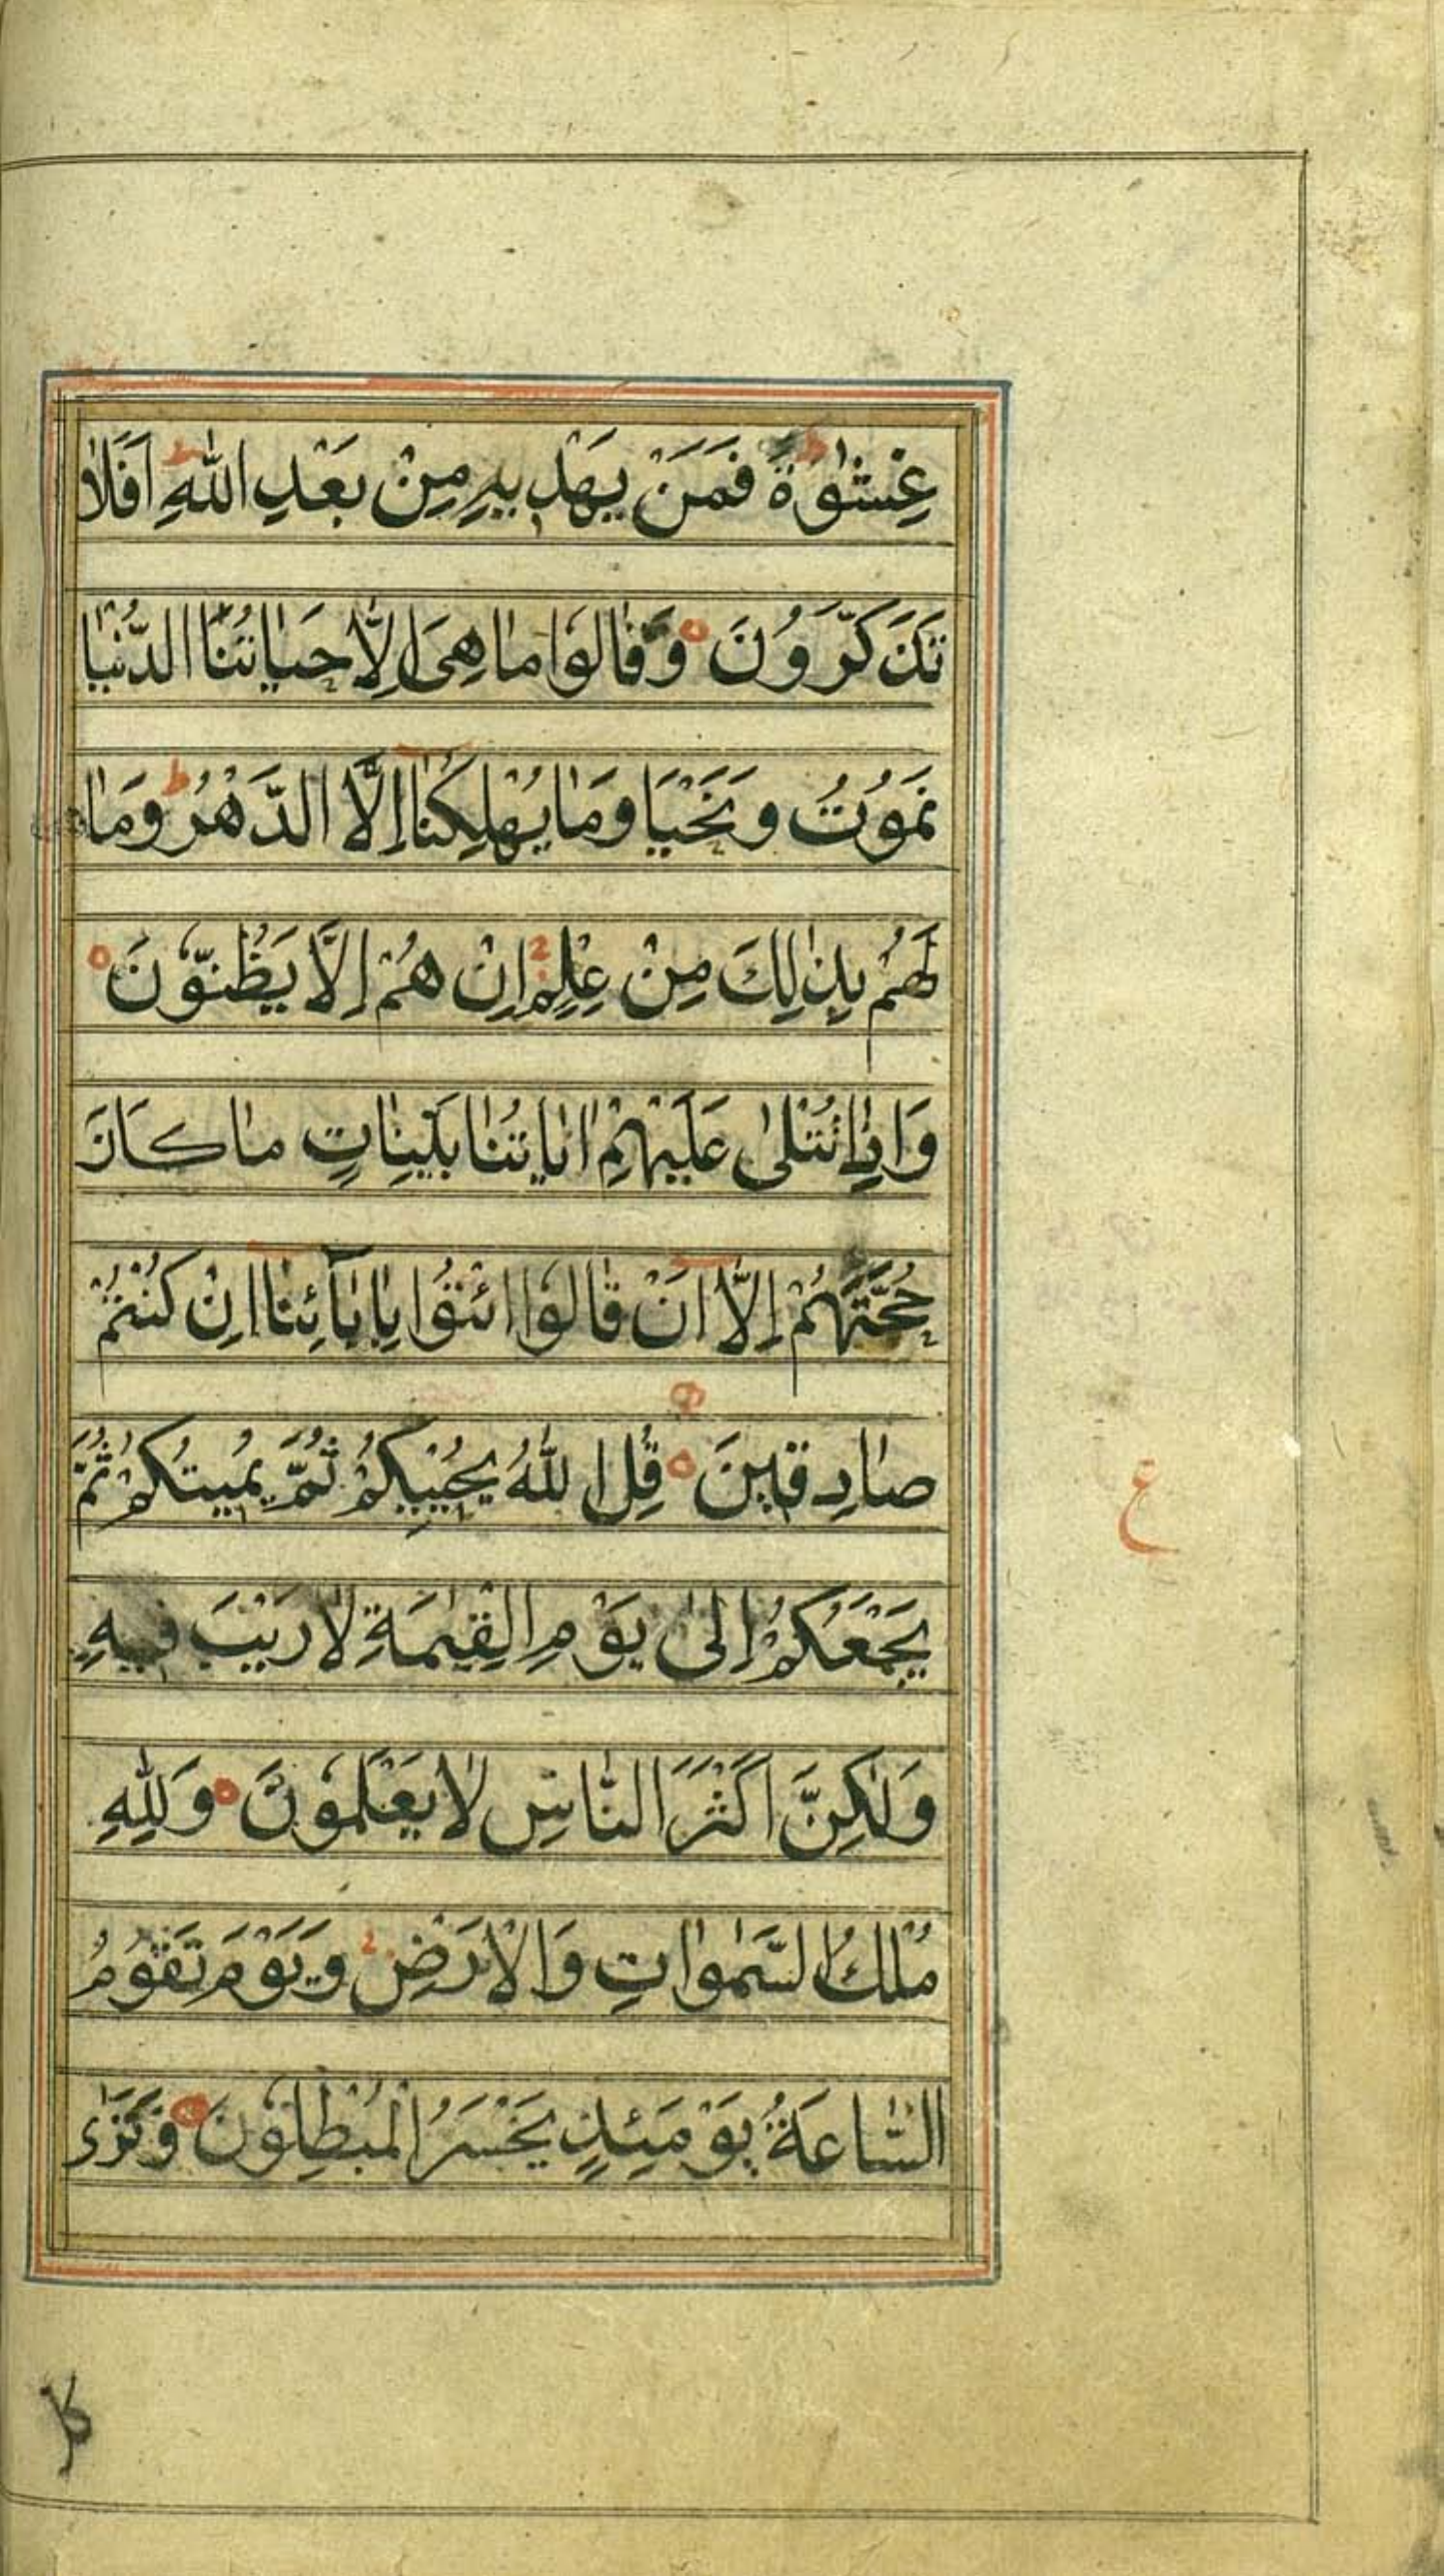 غِشٰوَةً ؕ فَمَنْ يَهْدِيهِ مِنْ بَعْدِ اللّٰهِ ؕ اَفَلَا
تَذَكَّرُونَ ٥ وَقَالُوا مَا هِىَ اِلَّا حَيَاتُنَا الدُّنْيَا
نَمُوْتُ وَنَحْيَا وَمَا يُهْلِكُنَا اِلَّا الدَّهْرُ ؕ وَمَا
لَهُمْ بِذٰلِكَ مِنْ عِلْمٍ اِنْ هُمْ اِلَّا يَظُنُّوْنَ ٥
وَاِذَا تُتْلٰى عَلَيْهِمْ اٰيَاتُنَا بَيِّنَاتٍ مَا كَانَ
حُجَّتَهُمْ اِلَّا اَنْ قَالُوا ائْتُوْا بِاٰبَآئِنَا اِنْ كُنْتُمْ
صَادِقِينَ ٥ قُلِ اللّٰهُ يُحْيِيْكُمْ ثُمَّ يُمِيتُكُمْ ثُمَّ
ع
يَجْمَعُكُمْ اِلٰى يَوْمِ الْقِيٰمَةِ لَا رَيْبَ فِيهِ
وَلٰكِنَّ اَكْثَرَ النَّاسِ لَا يَعْلَمُوْنَ ٥ وَلِلّٰهِ
مُلْكُ السَّمٰوَاتِ وَالْاَرْضِ وَيَوْمَ تَقُوْمُ
السَّاعَةُ يَوْمَئِذٍ يَخْسَرُ الْمُبْطِلُوْنَ ٥ وَتَرٰى
كل